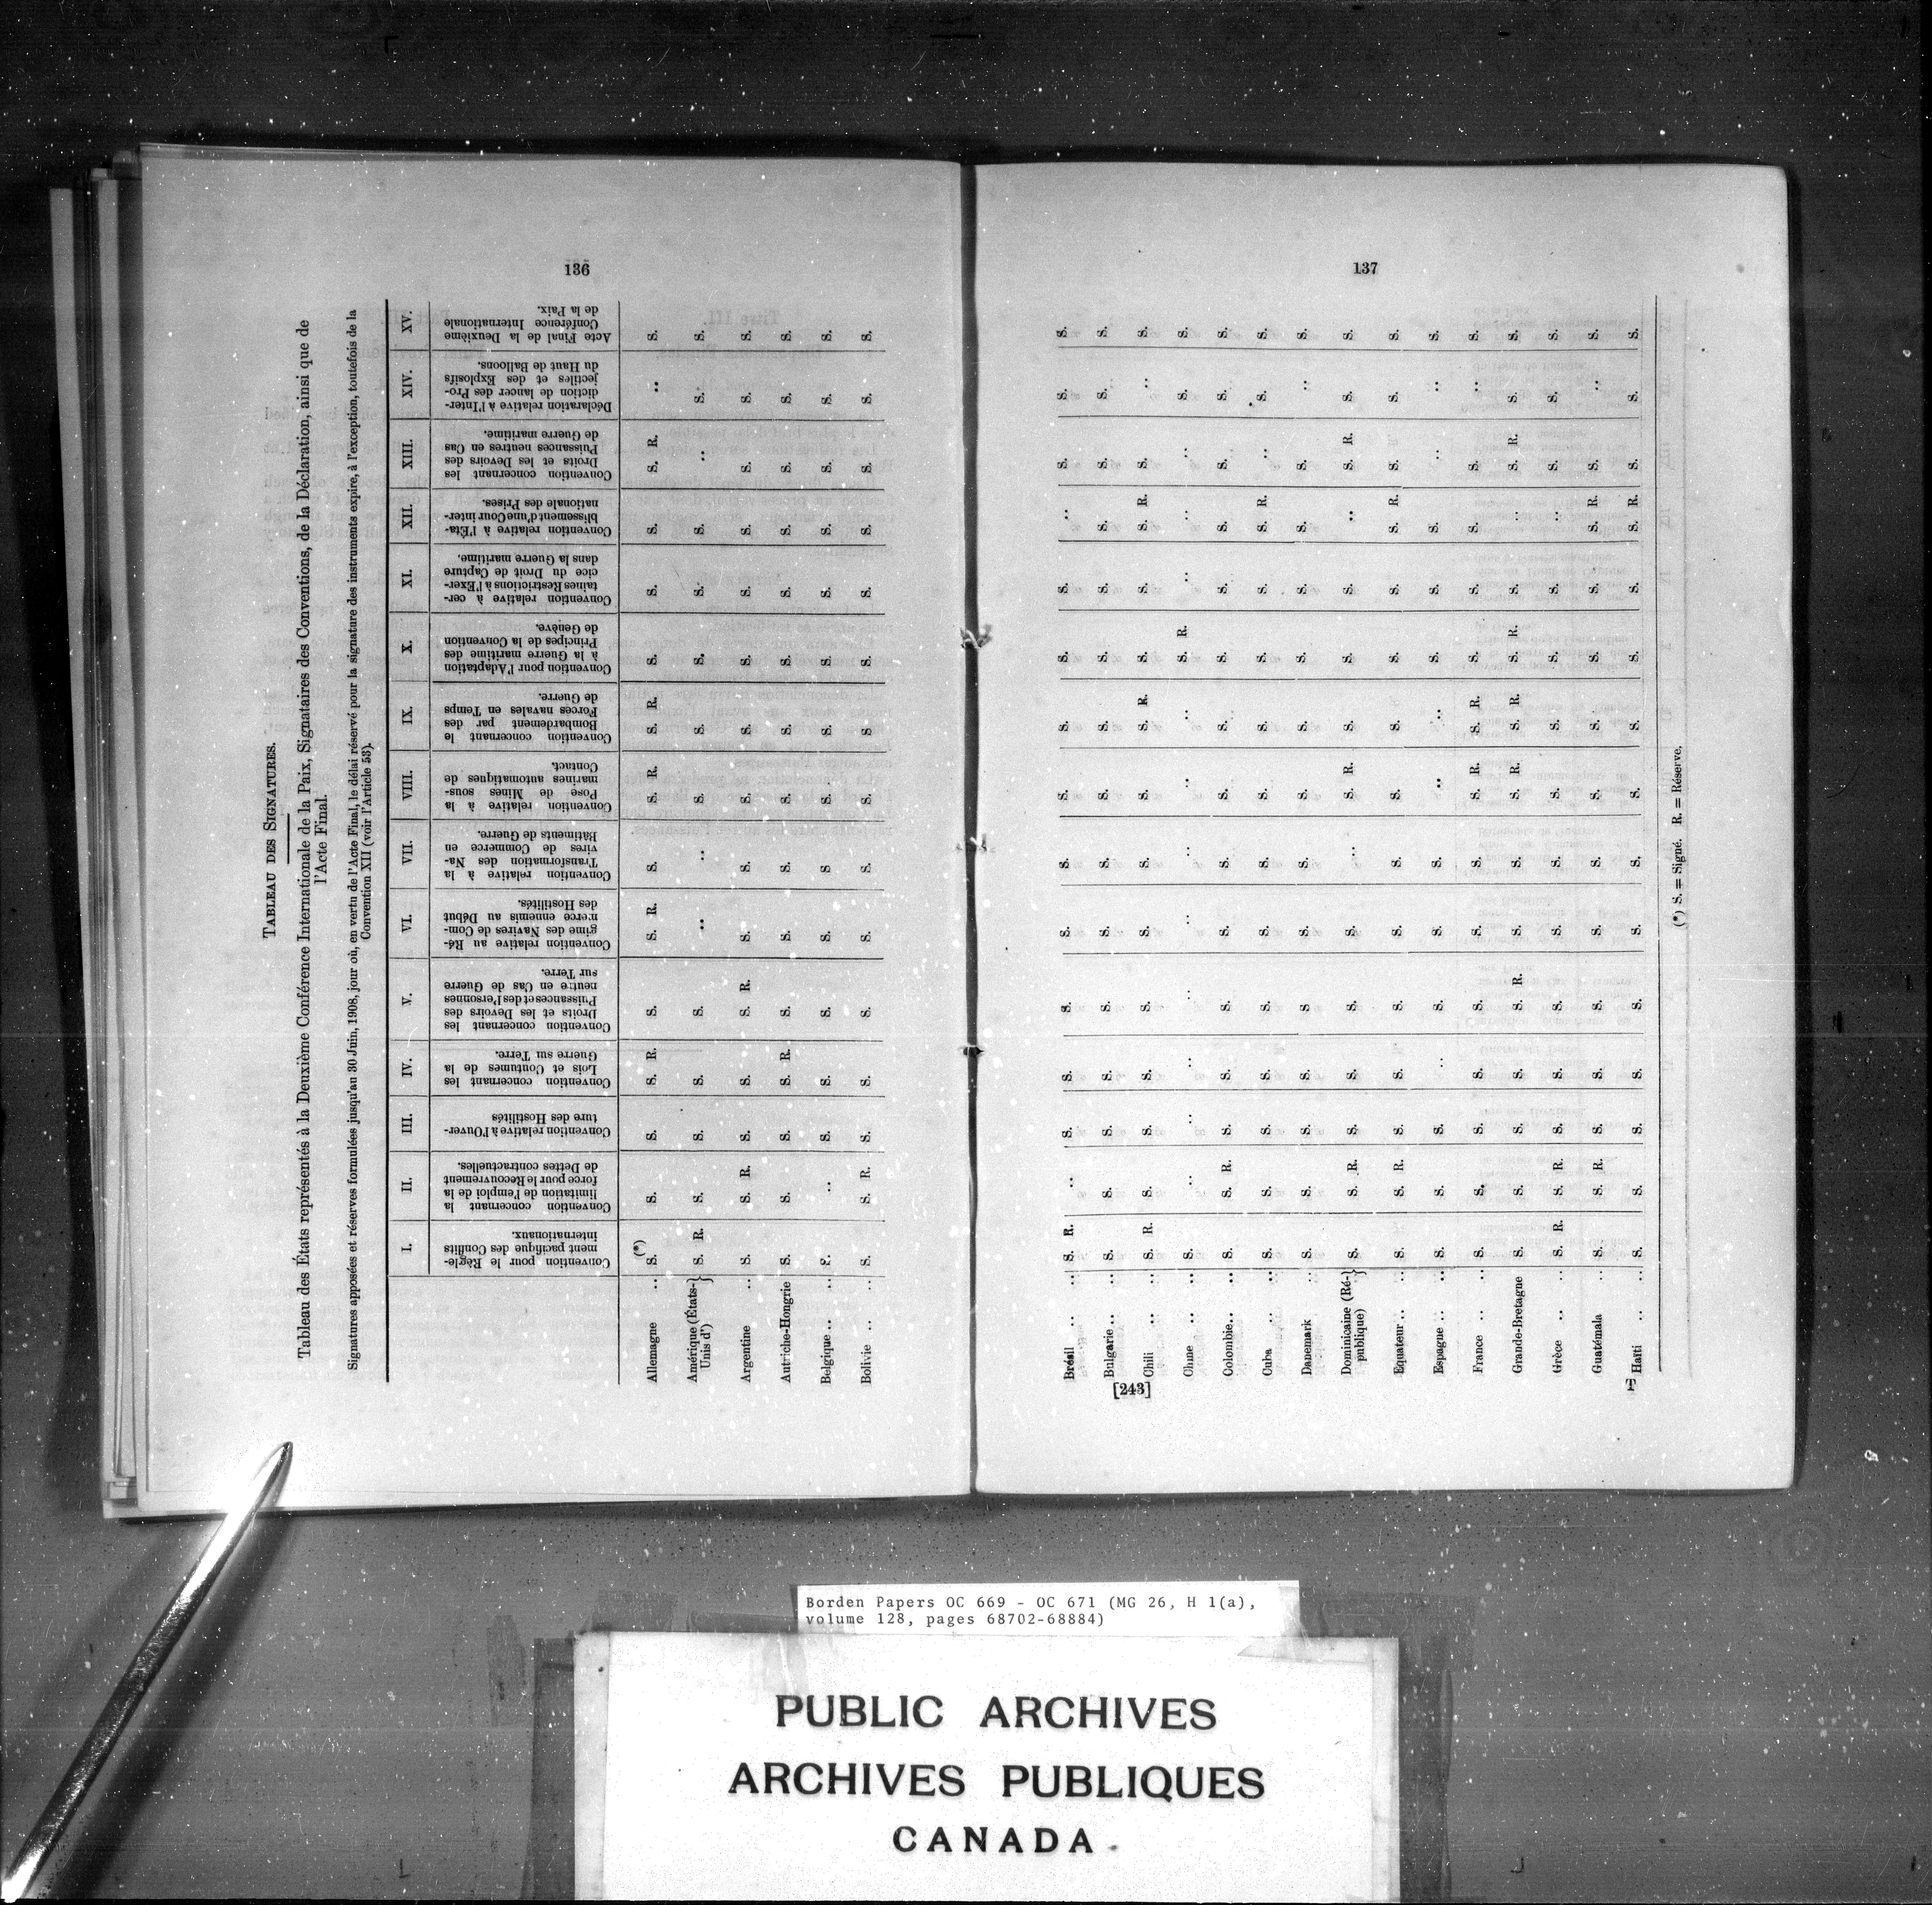 136
TABLEAU DES SIGNATURES.
Tableau des États représentés à la Deuxième Conférence Internationale de la Paix, Signataires des Conventions, de la Déclaration, ainsi que de
l'Acte Final.
Signatures apposées et réserves formulées jusqu'au 30 Juin, 1908, jour où, en vertu de l'Acte Final, le délai réservé pour la signature des instruments expire, à l'exception, toutefois de la
Convention XII (voir l'Article 53).
I. II. III. IV. V. VI. VII. VIII. IX. X. XI. XII. XIII. XIV. XV.
Convention pour le Règle-
ment pacifique des Conflits
internationaux.
Convention concernant la
limitation de l'emploi de la
force pour le Recouvrement
de Dettes contractuelles.
Convention relative à l'Ouver-
ture des Hostilités
Convention concernant les
Lois et Coutumes de la
Guerre sur Terre.
Convention concernant les
Droits et les Devoirs des
Puissances et des Personnes
neutre en Cas de Guerre
sur Terre.
Convention relative au Ré-
gime des Navires de Com-
merce ennemis au Début
des Hostilités.
Convention relative à la
Transformation des Na-
vires de Commerce en
Bâtiments de Guerre.
Convention relative à la
Pose de Mines sous-
marines automatiques de
Contact.
Convention concernant le
Bombardement par des
Forces navales en Temps
de Guerre.
Convention pour l'Adaptation
à la Guerre maritime des
Principes de la Convention
de Genève.
Convention relative à cer-
taines Restrictions à l'Exer-
cice du Droit de Capture
dans la Guerre maritime.
Convention relative à l'Éta-
blissement d'une Cour inter-
nationale des Prises.
Convention concernant les
Droits et les Devoirs des
Puissances neutres en Cas
de Guerre maritime.
Déclaration relative à l'Inter-
diction de lancer des Pro-
jectiles et des Explosifs
du Haut de Balloons.
Acte Final de la Deuxième
Conférence Internationale
de la Paix.
Allemagne .. (*) S. S. S. S. R. S. S. R. S. S. R. S. R. S. S. S. S. R. .. S.
Amérique (États-} S. R. S. S. S. S. .. .. S. S. S. S. S. .. S. S.
Unis d')
Argentine .. S. S. R. S. S. S. R. S. S. S. S. S. S. S. S. S. S.
Autriche-Hongrie S. S. S. S. R. S. S. S. S. S. S. S. S. S. S. S.
Belgique .. .. S. .. S. S. S. S. S S. S. S. S. S. S. S. S.
Bolivie .. .. S. S. R. S. S. S. S. S. S. S S. S. S. S. S. S.
137
Brésil .. .. S. R. .. S. S. S. S. S. S. S. S. S. .. S. S. S.
Bulgarie .. .. S. S. S. S. S. S. S. S. S. S. S. S. S. S. S.
Chili .. .. S. R. S. S. S. S. S. S. S. S. R. S. S. S. R. S. .. S.
Chine .. .. S. .. .. .. .. .. .. .. .. S. R. .. .. .. S. S.
Colombie .. .. S. S. R. S. S. S. S. S. S. S. S. S. S. S. S. S.
Cuba .. .. S. S. S. S. S. S. S. S. S. S. S. S. R. .. S. S.
Danemark .. S. S. S. S. S. S. S. S. S. S. S. S. S. .. S.
Dominicaine (Ré-} S. S. R. S. S. S. S. .. S. R. S. S. S. .. S. R. S. S.
publique)
Equateur .. .. S. S. R. S. S. S. S. S. S. S. S. S. S. R. S. S. S.
Espagne .. .. S. S. S. .. S. S. S. .. .. S. S. S. .. .. S.
France .. .. S. S. S. S. S. S. S. S. R. S. R. S. S. S. S. .. S.
Grande-Bretagne S. S. S. S. S. R. S. S. S. R. S. R. S. R. S. .. S. R. S. S.
Grèce .. .. S. R. S. R. S. S. S. S. S. S. S. S. S. .. S. S. S.
Guatémala .. S. S. R. S. S. S. S. S. S. S. S. S. S. R. S. .. S.
Haïti .. .. S. S. S. S. S. S. S. S. S. S. S. S. R. S. S. S.
(*) S. = Signé. R. = Réserve.
[243] T
Borden Papers OC 669 - OC 671 (MG 26, H 1(a),
volume 128, pages 68702-68884)
PUBLIC ARCHIVES
ARCHIVES PUBLIQUES
CANADA